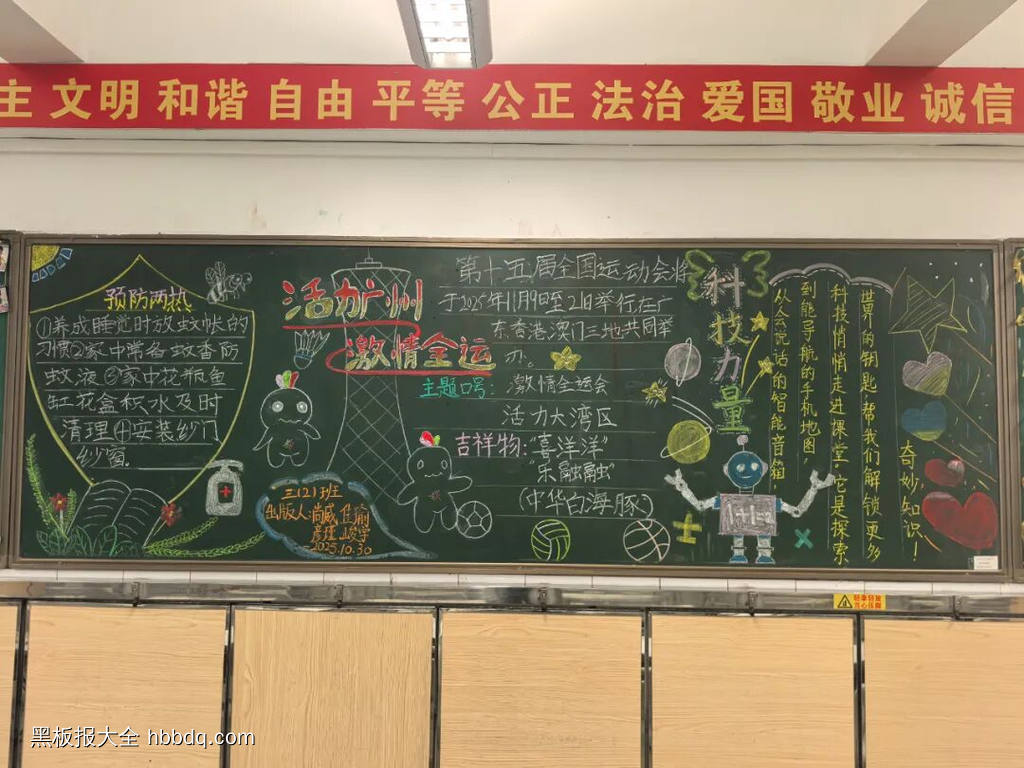 主 文明 和谐 自由 平等 公正 法治 爱国 敬业 诚信
预防两热
①养成睡觉时放蚊帐的
习惯②家中常备蚊香防
蚊液③家中花瓶鱼
缸花盒积水及时
清理④安装纱门
纱窗
活力广州
激情全运
第十五届全国运动会将
于2025年11月9日至21日举行在广
东香港澳门三地共同举
办。
主题口号: 激情全运会
活力大湾区
吉祥物:"喜洋洋"
"乐融融"
(中华白海豚)
三(2)班
出版人:尚威 佳瑜
2025.10.30
科技力量
从会说话的智能音箱
到能导航的手机地图,
科技悄悄走进课堂,它是探索
世界的钥匙,帮我们解锁更多
奇妙知识!
轻拿轻放
当心压脚
黑板报大全 hbbdq.com